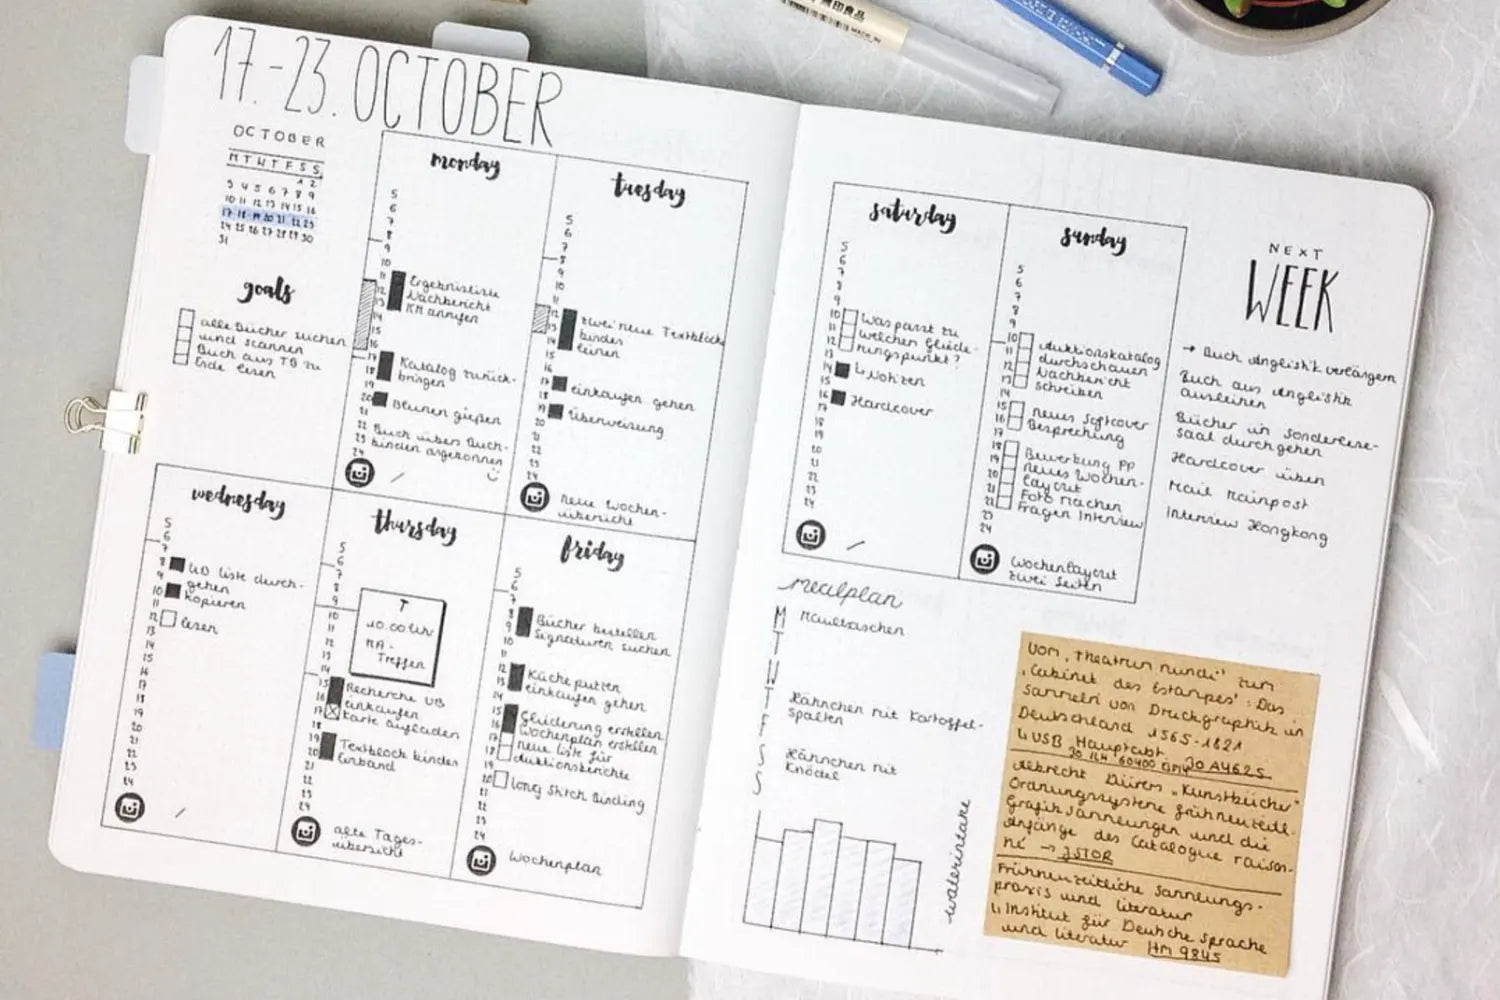 無印良品
MADE IN
17.-23. OCTOBER
OCTOBER
M T W T F S S
1 2
3 4 5 6 7 8 9
10 11 12 13 14 15 16
17 18 19 20 21 22 23
24 25 26 27 28 29 30
31
goals
alle Bücher suchen
und scannen
Buch aus TB zu
Ende lesen
monday
5
6
7
8
9
10
11
12
13
14
15
16
17
18
19
20
21
22
23
24
Ergebnisliste
Nachbericht
KH anrufen
Katalog zurück-
bringen
Blumen gießen
Buch übers Buch-
binden angekommen
tuesday
5
6
7
8
9
10
11
12
13
14
15
16
17
18
19
20
21
22
23
24
zwei neue Textblöcke
binden
leimen
einkaufen gehen
Überweisung
neue Wochen-
übersicht
wednesday
5
6
7
8
9
10
11
12
13
14
15
16
17
18
19
20
21
22
23
24
UB liste durch-
gehen
kopieren
lesen
thursday
5
6
7
8
9
10
11
12
13
14
15
16
17
18
19
20
21
22
23
24
T
10.00 Uhr
MA-
Treffen
Recherche UB
einkaufen
Karte aufladen
Textblock binden
Einband
alte Tages-
übersicht
friday
5
6
7
8
9
10
11
12
13
14
15
16
17
18
19
20
21
22
23
24
Bücher bestellen
Signaturen suchen
Küche putzen
einkaufen gehen
Gliederung erstellen
Wochenplan erstellen
neue liste für
Auktionsberichte
long stitch Binding
Wochenplan
saturday
5
6
7
8
9
10
11
12
13
14
15
16
17
18
19
20
21
22
23
24
Was passt zu
welchen Gliede-
rungspunkt?
↳ Notizen
Hardcover
sunday
5
6
7
8
9
10
11
12
13
14
15
16
17
18
19
20
21
22
23
24
Auktionskatalog
durchschauen
Nachbericht
schreiben
neues Softcover
Besprechung
Bewerbung PP
neues Wochen-
layout
Foto machen
Fragen Interview
Wochenlayout
zwei Seiten
NEXT
WEEK
→ Buch Anglistik verlängern
Buch aus Anglistik
ausleihen
Bücher in Sonderlese-
saal durchgehen
Hardcover üben
Mail Mainpost
Interview Hongkong
mealplan
M Maultaschen
T
W
T Hähnchen mit Kartoffel-
spalten
F
S Hähnchen mit
Knödel
S
waterintake
Vom "Theatrum mundi" zum
"Cabinet des Estampes": Das
Sammeln von Druckgraphik in
Deutschland 1565-1821
↳ USB Hauptabt. 20 A4625
Albrecht Dürers "Kunstbücher"
Ordnungssysteme frühneuzeitl.
Grafiksammlungen und die
Anfänge des Catalogue raison-
né → JSTOR
Frühneuzeitliche Sammlungs-
praxis und literatur
↳ Institut für Deutsche Sprache
und literatur HM 9845